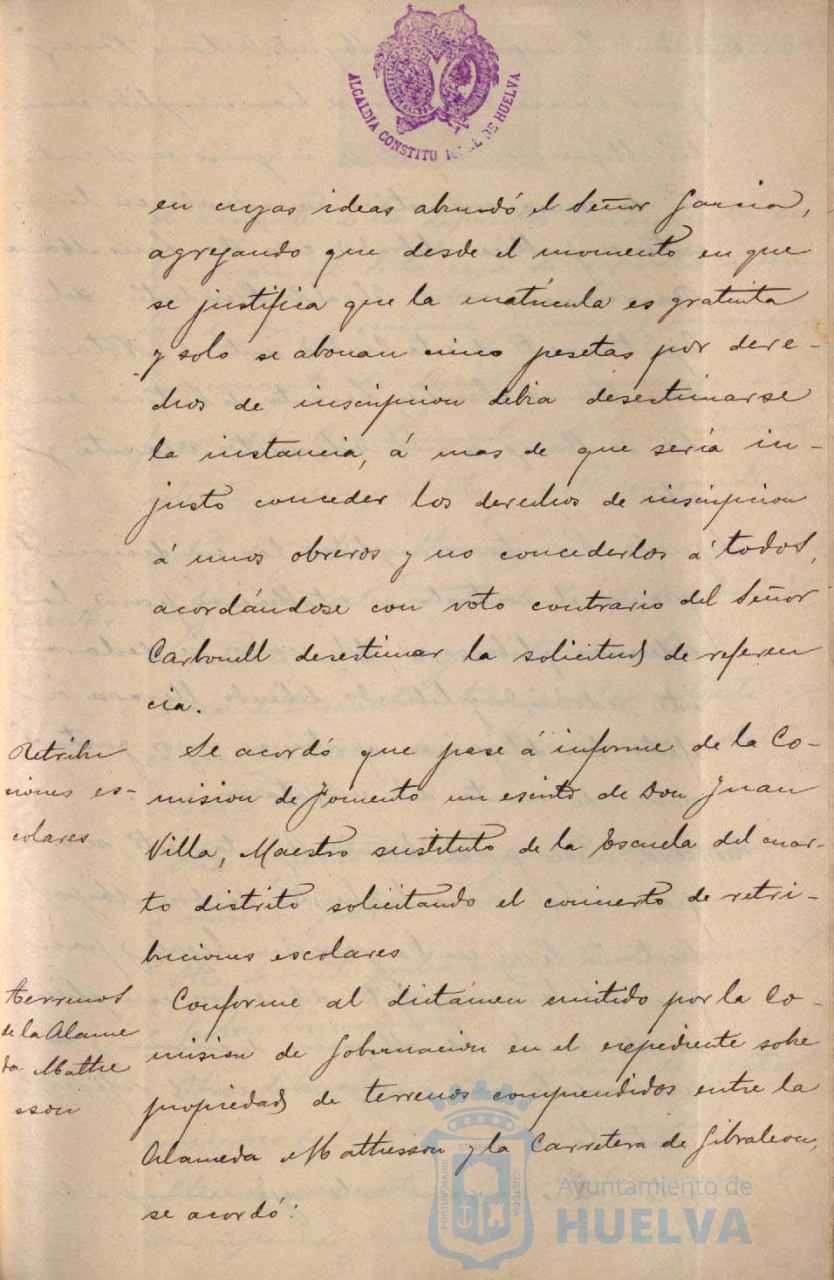 ALCALDIA CONSTITUCIONAL DE HUELVA
en cuyas ideas abundó el Señor Garcia,
agregando que desde el momento en que
se justifica que la matrícula es gratuita
y solo se abonan cinco pesetas por dere-
chos de inscripcion debia desestimarse
la instancia, á mas de que sería in-
justo conceder los derechos de inscripcion
á unos obreros y no concederlos á todos,
acordándose con voto contrario del Señor
Carbonell desestimar la solicitud de referen
cia.
Retribu
ciones es-
colares
Se acordó que pase á informe de la Co-
mision de Fomento un escrito de Don Juan
Villa, Maestro sustituto de la Escuela del cuar-
to distrito solicitando el concierto de retri-
buciones escolares
terrenos
de la Alame
da Mathe
sson
Conforme al dictámen emitido por la Co-
mision de Gobernacion en el expediente sobre
propiedad de terrenos comprendidos entre la
Alameda Mathesson y la Carretera de Gibraleon,
se acordó:
Ayuntamiento de
HUELVA